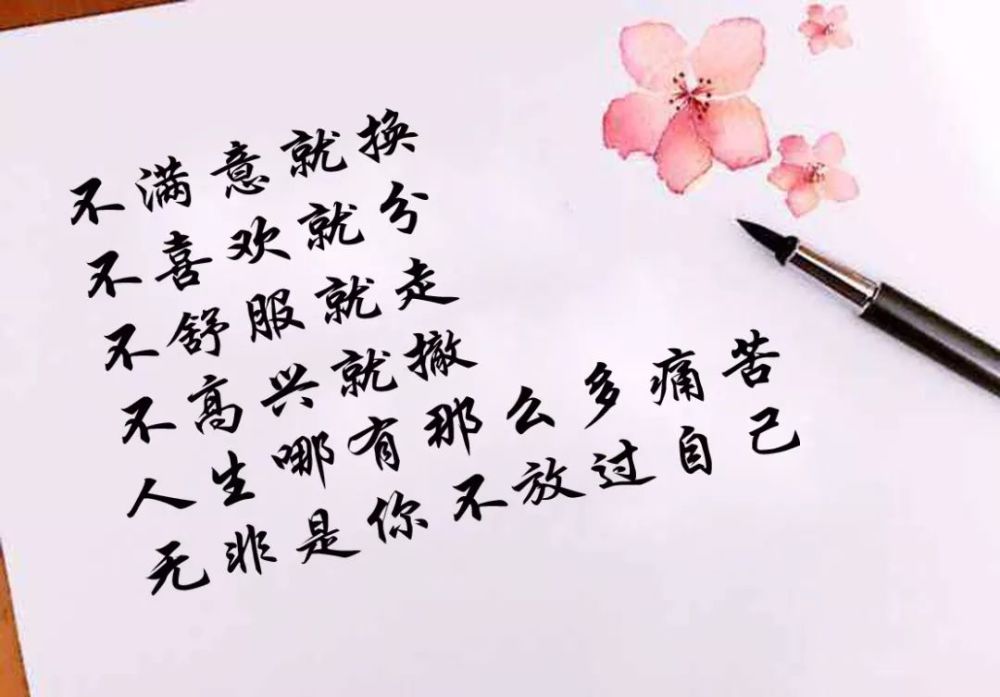 不满意就换
不喜欢就分
不舒服就走
不高兴就撤
人生哪有那么多痛苦
无非是你不放过自己